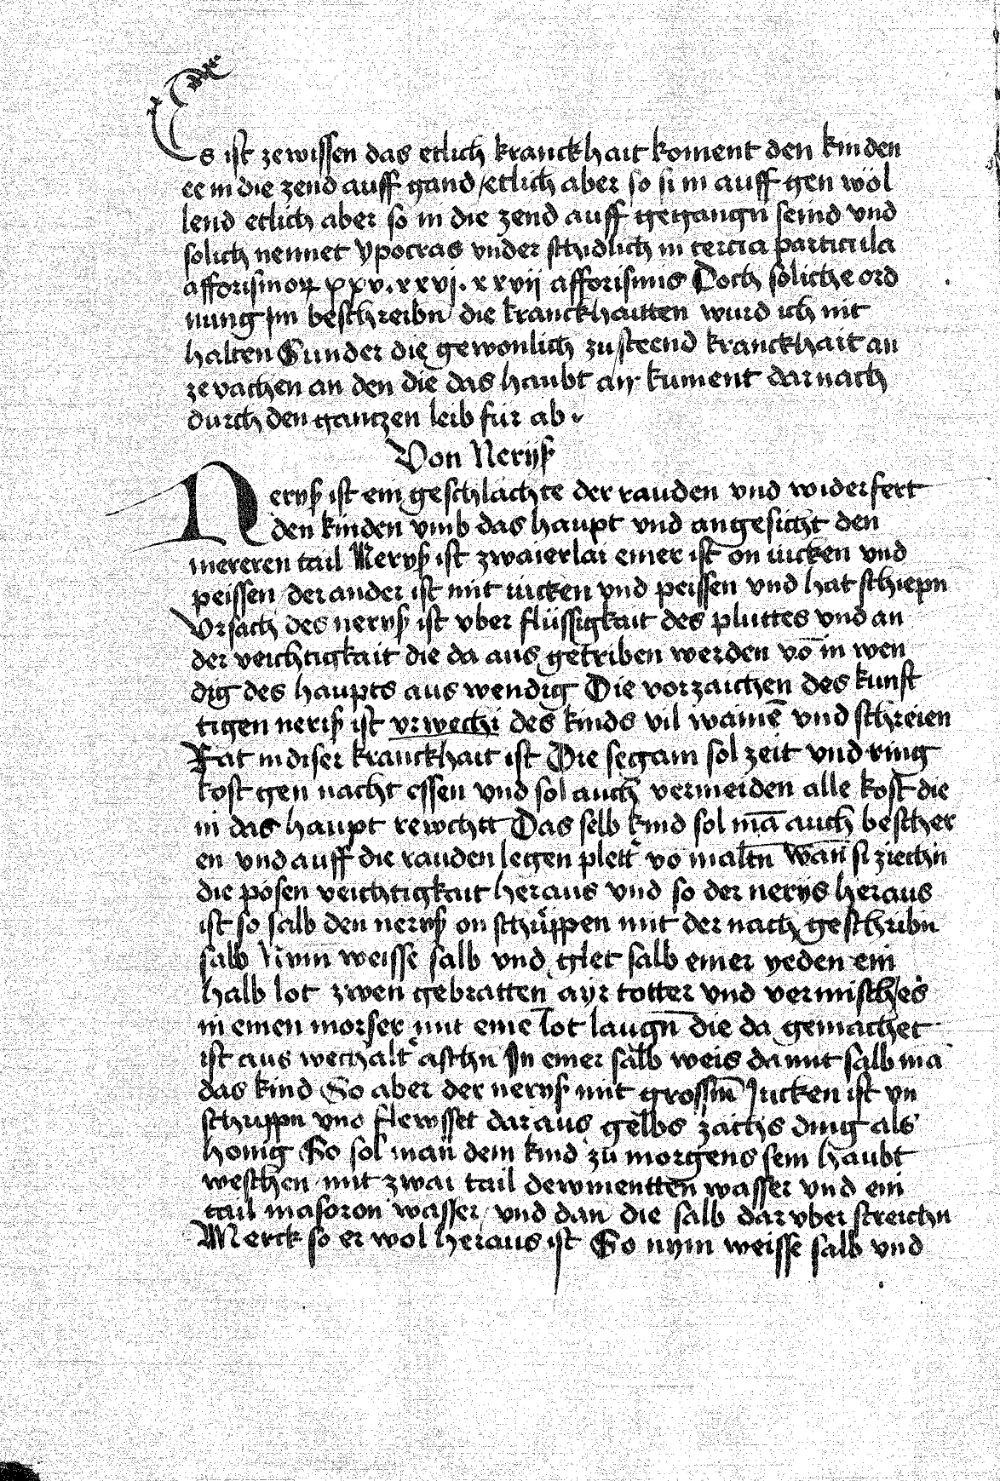 Es ist ze wissen das etlich kranckhait koment den kinden
ee in die zend auff gand / etlich aber so si in auff gen wöl
lend etlich aber so in die zend auff gegangn seind vnd
solich nennet ypocras vnder schidlich in tercia particula
afforismorum xxv. xxvj. xxvij afforismis Doch soliche ord
nung jm beschreibn die kranckhaitten wurd ich nit
halten Sunder die gewonlich zu steend kranckhait an
ze vachen an den die das haubt an kument darnach
durch den gantzen leib für ab
Von Neryß
Neryß ist ein geschlächte der rauden vnd widerfert
den kinden vmb das haupt vnd angesicht den
mereren tail Neryß ist zwaierlai einer ist on iucken vnd
peissen der ander ist mit iucken vnd peissen vnd hat schiepn
Vrsach des neryß ist vber flüssigkait des pluttes vnd an
der veichtigkait die da aus getriben werden vō in wen
dig des haupts aus wendig Die vorzaichen des kunff
tigen neriß ist vrwechi des kinds vil wainē vnd schreien
Rat in diser kranckhait ist Die segam sol zeit vnd ring
kost gen nacht essen vnd sol auch vermeiden alle kost die
in das haupt rewchtt Das selb kind sol mā auch bescher
en vnd auff die rauden legen plett vō maltn wān si ziechn
die pösen veichtigkait heraus vnd so der nerys heraus
ist so salb den neryß on schüppen mit der nach geschribn
salb Nym weisse salb vnd glet salb einer yeden ein
halb lot zwen gebratten ayr totter vnd vermisch es
in einen morser mit einē lot laugn die da gemachet
ist aus wechalt aschn In einer salb weis da mit salb mā
das kind So aber der neryß mit grossm̄ Jucken ist vn
schuppn vnd flewsset dar aus gelbs zächs ding als
honig So sol man dem kind zu morgens sein haubt
weschen mit zwai tail dewmentten wasser vnd ein
tail masoron wasser / vnd dan die salb dar vber streichn
Merck so er wol heraus ist So nym weisse salb vnd